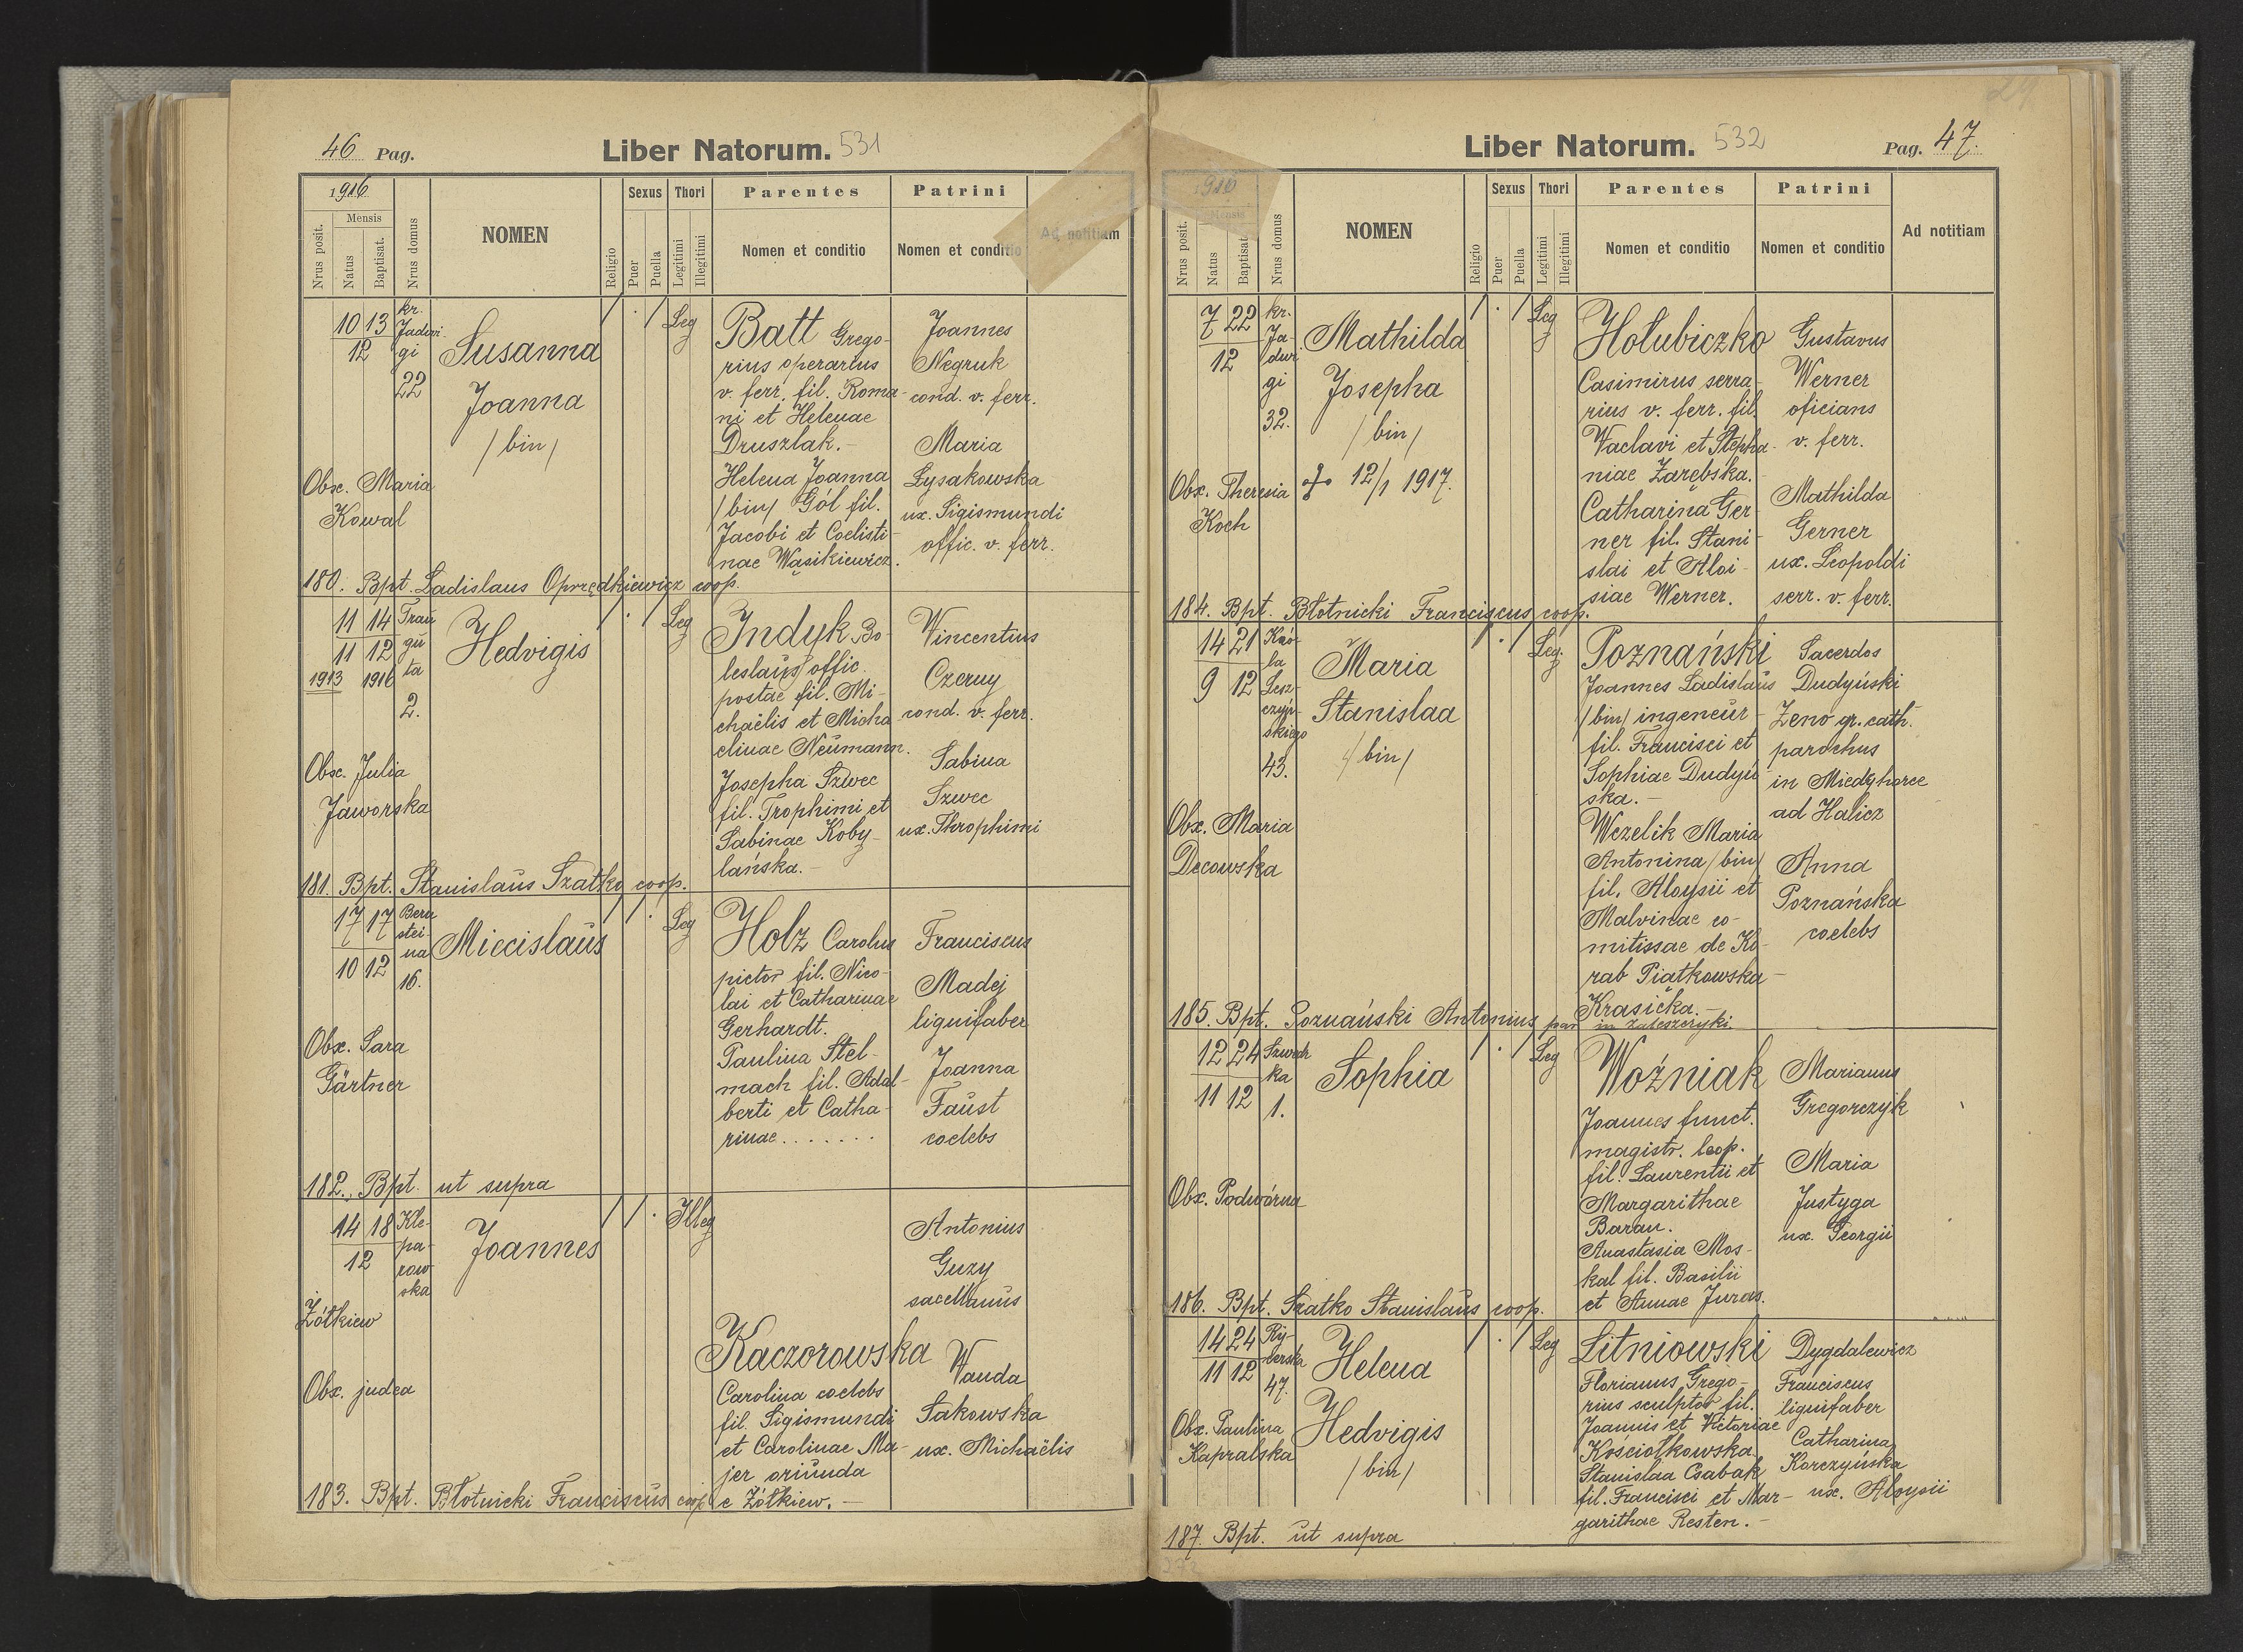 46 Pag.
Liber Natorum. 531
1916
Nrus posit.
Mensis
Natus
Baptisat.
Nrus domus
NOMEN
Religio
Sexus
Puer
Puella
Thori
Legitimi
Illegitimi
Parentes
Nomen et conditio
Patrini
Nomen et conditio
Ad notitiam
10 13
12
kr.
Jadwi
gi
22
Susanna
Joanna
/bin/
Obx. Maria
Kowal
Leg
Batt Grego-
rius operarius
v. ferr. fil. Roma-
ni et Helenae
Druszlak.-
Helena Joanna
/bin/ Gól fil.
Jacobi et Coelisti-
nae Wąsikiewicz.
Joannes
Negruk
cond. v. ferr.
Maria
Lysakowska
ux. Sigismundi
offic. v. ferr.
180. Bpt. Ladislaus Oprzędkiewicz coop.
11 14
11 12
1913 1916
Trau
gu
ta
2.
Hedvigis
Obx. Julia
Jaworska
Leg
Indyk Bo-
leslaus offic.
postae fil. Mi-
chaëlis et Micha-
elinae Neumann.
Josepha Szwec
fil. Trophimi et
Sabinae Koby-
lańska.-
Wincentius
Czerny
cond. v. ferr.
Sabina
Szwec
ux. Throphimi
181. Bpt. Stanislaus Szatko coop.
17 17
10 12
Bern
stei-
na
16.
Miecislaus
Obx. Sara
Gärtner
Leg
Holz Carolus
pictor fil. Nico-
lai et Catharinae
Gerhardt.
Paulina Stel-
mach fil. Adal-
berti et Catha-
rinae.......
Franciscus
Madej
lignifaber
Joanna
Faust
coelebs
182. Bpt. ut supra
14 18
12
Kle-
pa-
row-
ska
Joannes
Żółkiew
Obx. judea
Illeg
Kaczorowska
Carolina coelebs
fil. Sigismundi
et Carolinae Ma-
jer oriunda
e Żółkiew.-
Antonius
Guzy
sacellanus
Wanda
Sakowska
ux. Michaëlis
183. Bpt. Błotnicki Franciscus coop.
Liber Natorum. 532
Pag. 47.
1916
Nrus posit.
Mensis
Natus
Baptisat.
Nrus domus
NOMEN
Religio
Sexus
Puer
Puella
Thori
Legitimi
Illegitimi
Parentes
Nomen et conditio
Patrini
Nomen et conditio
Ad notitiam
7 22
12
kr.
Ja-
dwi
gi
32.
Mathilda
Josepha
/bin/
Obx. Theresia
Koch
12/1 1917.
Leg
Hołubiczko
Casimirus serra-
rius v. ferr. fil.
Waclavi et Stepha-
niae Zarębska.
Catharina Ger-
ner fil. Stani-
slai et Aloi-
siae Werner.
Gustavus
Werner
oficians
v. ferr.
Mathilda
Gerner
ux. Leopoldi
serr. v. ferr.
184. Bpt. Błotnicki Franciscus coop.
14 21
9 12
Karo-
la
Lesz-
czyń-
skiego
43.
Maria
Stanislaa
/bin/
Obx. Maria
Decowska
Leg.
Poznański
Joannes Ladislaus
/bin/ ingeneur
fil. Francisci et
Sophiae Dudyń-
ska.-
Wczelik Maria
Antonina /bin/
fil. Aloysii et
Malvinae co-
mitissae de Ko-
rab Piatkowska-
Krasicka.-
Sacerdos
Dudyński
Zeno gr. cath.
parochus
in Miedzyhorce
ad Halicz
Anna
Poznańska
coelebs
185. Bpt. Poznański Antonius par in Zaleszczyki
12 24
11 12
Szweds
ka
1.
Sophia
Obx. Podwórna
Leg
Woźniak
Joannes funct.
magistr. leop.
fil. Laurentii et
Margarithae
Baran.
Anastasia Mos-
kal fil. Basilii
et Annae Juras.
Marianus
Gregorczyk
Maria
Justyga
ux. Georgii
186. Bpt. Szatko Stanislaus coop.
14 24
11 12
Ry-
cerska
47.
Helena
Hedvigis
/bin/
Obx. Paulina
Kapralska
Leg
Litniowski
Florianus Grego-
rius sculptor fil.
Joannis et Victoriae
Kościolkowska
Stanislaa Csabak
fil. Francisci et Mar-
garithae Resten.-
Dygdalewicz
Franciscus
lignifaber
Catharina
Korczyńska
ux. Aloysii
187. Bpt. ut supra